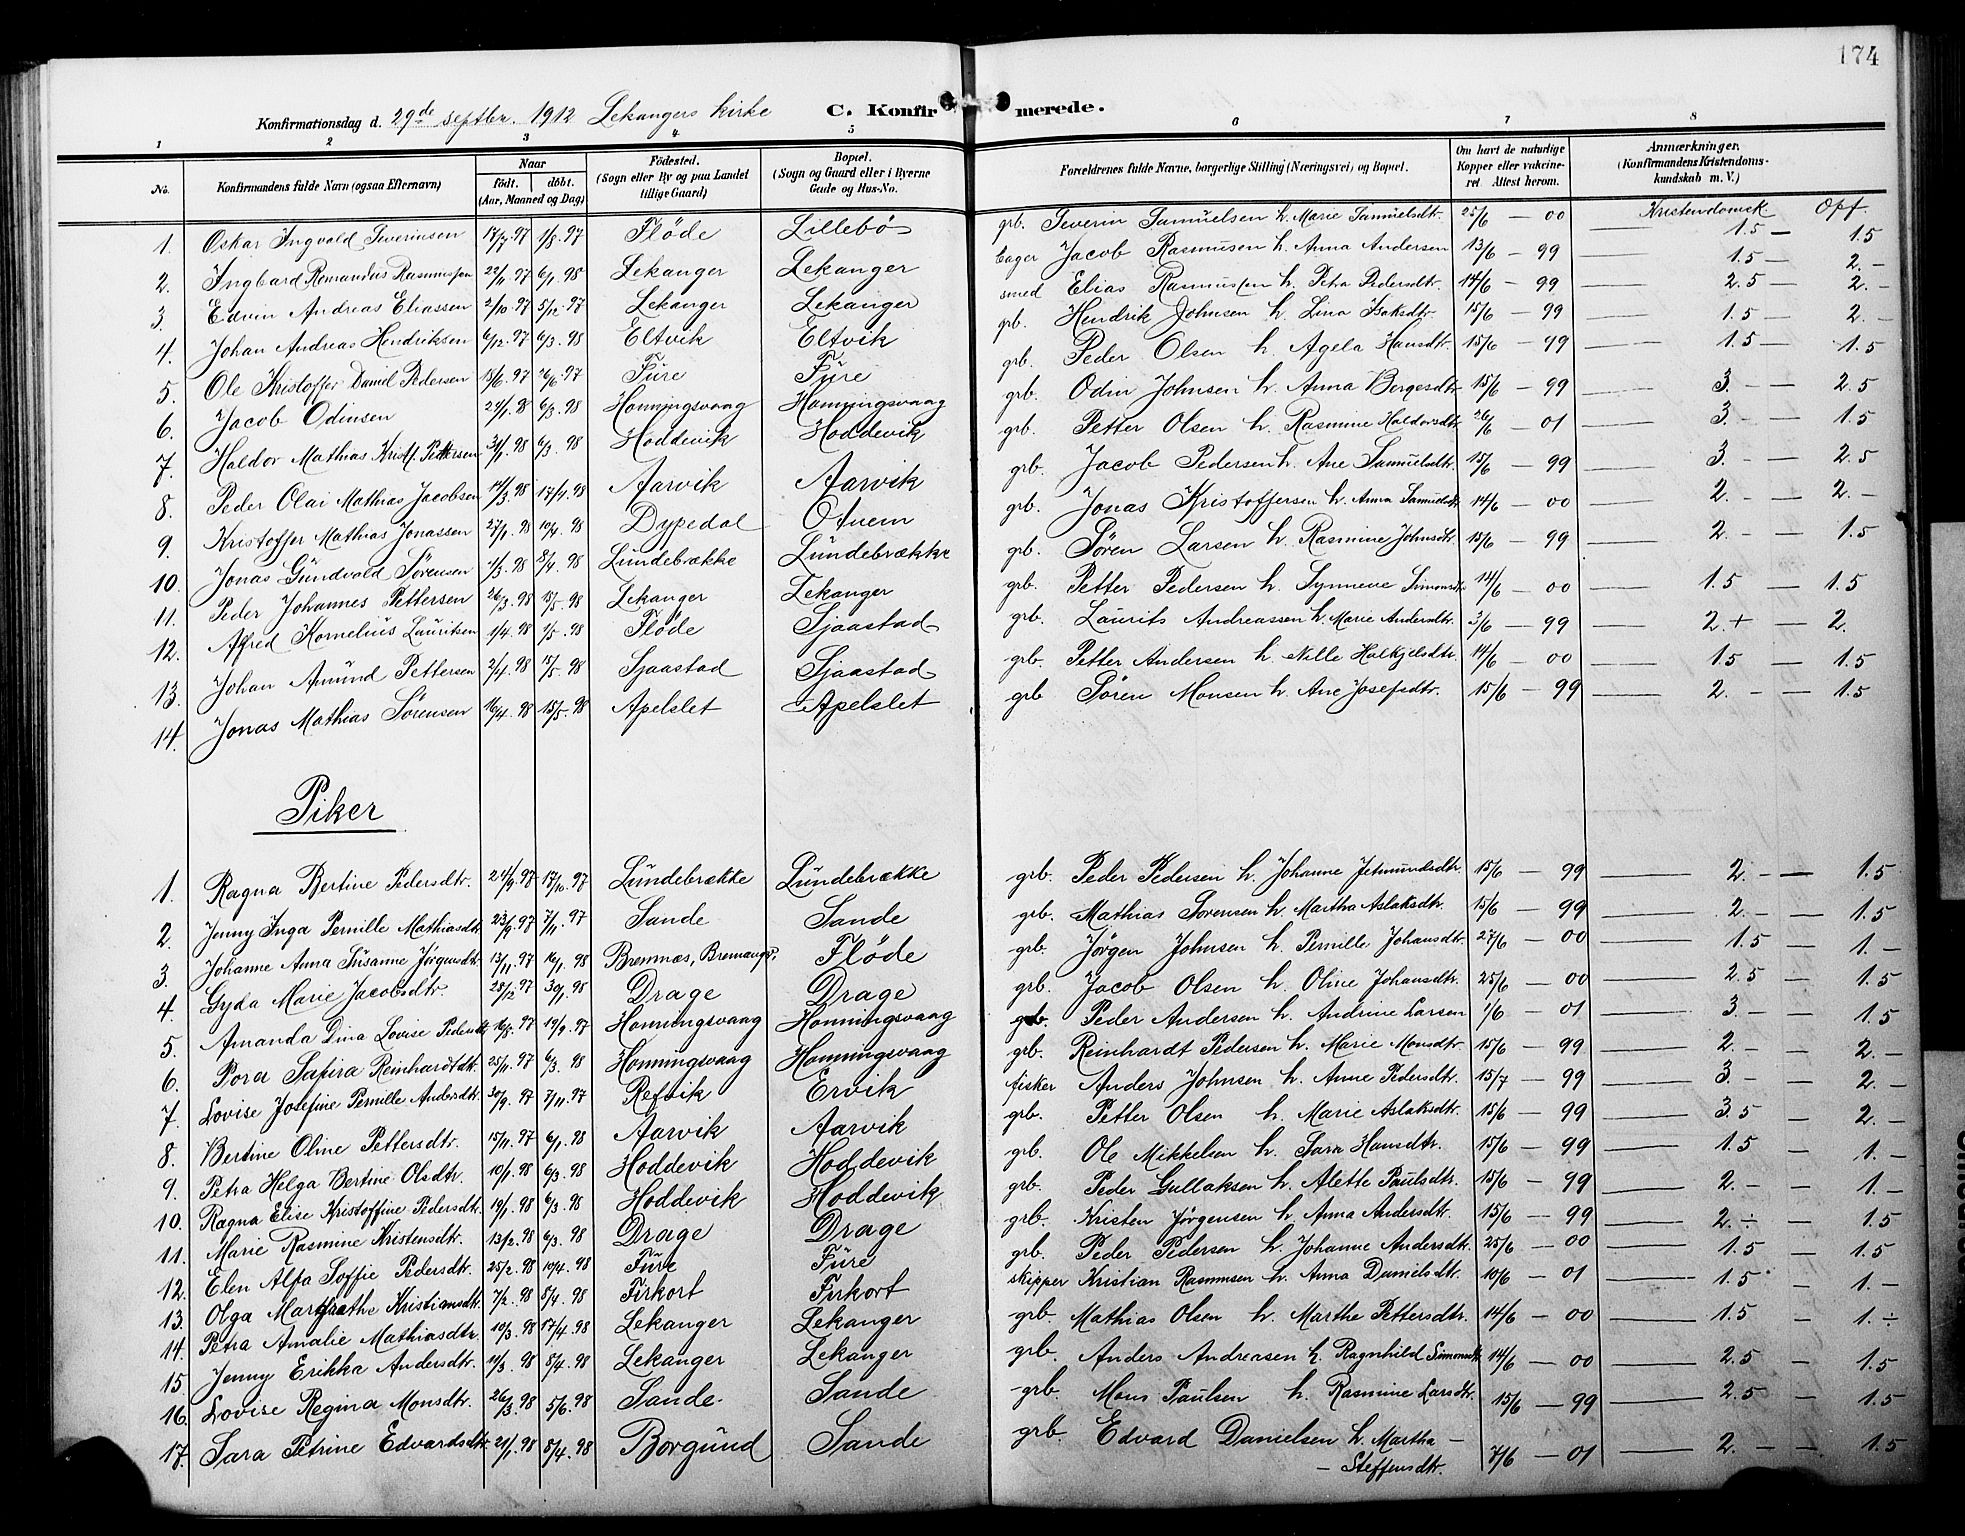 174
Konfirmationsdag d. 29de septbr. 1912 Lekangers kirke C. Konfirmerede.
1 2 3 4 5 6 7 8
No. Konfirmandens fulde Navn (ogsaa Efternavn) Naar født. døbt. (Aar, Maaned og Dag) Fødested. (Sogn eller By og paa Landet tillige Gaard) Bopæl. (Sogn og Gaard eller i Byerne Gade og Hus-No. Forældrenes fulde Navne, borgerlige Stilling (Næringsvei) og Bopæl. Om havt de naturlige Kopper eller vakcineret. Attest herom. Anmærkninger. (Konfirmandens Kristendomskundskab m. V.)
Kristendomsk Opf.
1. Oskar Ingvald Severinsen 17/7 97 1/8 97 Fløde Lillebø grb. Severin Samuelsen h. Marie Samuelsdtr. 25/6 — 00 — 1.5 — 1.5
2. Ingbard Remandus Rasmussen 22/11 97 6/1 98 Lekanger Lekanger bager Jacob Rasmusen h. Anna Andersen 13/6 — 99 — 1.5 — 2. -
3. Edvin Andreas Eliassen 2/10 97 5/12 97 Lekanger Lekanger smed Elias Rasmussen h. Petra Pedersdtr. 14/6 — 99 — 2.5 — 2. -
4. Johan Andreas Hendriksen 6/12 97 6/3 98 Eltvik Eltvik grb. Hendrik Johnsen h. Lina Isaksdtr. 15/6 — 99 — 1.5 — 2. -
5. Ole Kristoffer Daniel Pedersen 15/6 97 Fure Fure grb. Peder Olsen h. Agela Hansdtr. 15/6 — 99 — 1.5 — 1.5
6. Jacob Odinsen 24/1 98 6/3 98 Honningsvaag Honningsvaag grb. Odin Johnsen h. Anna Børgesdtr. 15/6 — 99 — 3. - — 2.5
7. Haldor Mathias Kristf. Pettersen 31/1 98 6/3 98 Hoddevik Hoddevik grb. Petter Olsen h. Rasmine Haldorsdtr. 26/6 — 01 — 3. - — 1.5
8. Peder Olai Mathias Jacobsen 14/3 98 17/4 98 Aarvik Aarvik grb. Jacob Pedersen h. Ane Samuelsdtr. 15/6 — 99 — 3. - — 2.5
9. Kristoffer Mathias Jonassen 27/1 98 10/4 98 Dypedal Otnem grb. Jonas Kristoffersen h. Anna Samuelsdtr. 14/6 — 00 — 2. - — 2. -
10. Jonas Gundvald Sørensen 1/3 98 8/4 98 Lundebrække Lundebrække grb. Søren Larsen h. Rasmine Johnsdtr. 15/6 — 99 — 2. - — 1.5
11. Peder Johannes Pettersen 26/3 98 15/5 98 Lekanger Lekanger grb. Petter Pedersen h. Synneve Simonsdtr. 14/6 — 00 — 1.5 — 1.5
12. Alfred Kornelius Lauritsen 1/4 98 1/5 98 Fløde Sjaastad grb. Laurits Andreassen h. Marie Andersdtr. 3/6 — 99 — 2. + — 2.
13. Johan Amund Pettersen 2/4 98 15/5 98 Sjaastad Sjaastad grb. Petter Andersen h. Nille Halkjelsdtr. 14/6 — 00 — 1.5 — 1.5
14. Jonas Mathias Sørensen 16/4 98 15/5 98 Apelslet Apelslet grb Søren Monsen h. Ane Josefsdtr. 15/6 — 99 — 2. - — 1.5
Piker
1. Ragna Bertine Pedersdtr. 24/9 97 17/10 97 Lundebrække Lundebrække grb. Peder Pedersen h. Johanne Jetmundsdtr. 15/6 — 99 — 2. - — 1.5
2. Jenny Inga Pernille Mathiasdtr. 23/9 97 7/11 97 Sande Sande grb. Mathias Sørensen h. Martha Aslaksdtr. 15/6 — 99 — 2. - — 1.5
3. Johanne Anna Susanne Jørgensdtr. 13/11 97 16/1 98 Bremnæs, Bremanger Fløde grb. Jørgen Johnsen h. Pernille Johansdtr. 27/6 — 00 — 1.5 — 1. -
4. Gyda Marie Jacobsdtr. 28/12 97 30/1 98 Drage Drage grb. Jacob Olsen h. Oline Johansdtr. 25/6 — 00 — 2.5 — 1.5
5. Amanda Dina Lovise Pedersdtr. 16/8 97 19/9 97 Honningsvaag Honningsvaag grb. Peder Andersen h. Andrine Larsen 1/6 — 01 — 3. - — 1.5
6. Pora Safira Reinhardtdtr. 25/11 97 6/3 98 Honningsvaag Honningsvaag grb. Reinhardt Pedersen h. Marie Monsdtr. 15/6 — 99 — 2. - — 2. -
7. Lovise Josefine Pernille Andersdtr. 30/9 97 7/11 97 Refvik Ervik fisker Anders Johnsen h. Anne Pedersdtr. 15/7 — 99 — 3. - — 2. -
8. Bertine Oline Pettersdtr. 15/11 97 6/1 98 Aarvik Aarvik grb. Petter Olsen h. Marie Aslaksdtr. 15/6 — 99 — 3.5 — 2. -
9. Petra Helga Bertine Olsdtr. 10/1 98 6/3 98 Hoddevik Hoddevik grb. Ole Mikkelsen h. Sara Hansdtr. 15/6 — 99 — 1.5 — 1. -
10. Ragna Elise Kristoffine Pedersdtr. 19/1 98 6/3 98 Hoddevik Hoddevik grb. Peder Gullaksen h. Alette Paulsdtr. 15/6 — 99 — 2. - — 1. -
11. Marie Rasmine Kristensdtr. 13/2 98 6/3 98 Drage Drage grb. Kristen Jørgensen h. Anna Andersdtr. 15/6 — 99 — 2. ÷ — 1.5
12. Elen Alfa Soffie Pedersdtr. 25/2 98 10/4 98 Fure Fure grb. Peder Pedersen h. Johanne Andersdtr. 25/6 — 00 — 1.5 — 1.5
13. Olga Margrethe Kristiansdtr. 7/2 98 8/4 98 Firkort Firkort skipper Kristian Rasmusen h. Anna Danielsdtr. 10/6 — 01 — 1.5 — 1. -
14. Petra Amalie Mathiasdtr. 10/3 98 17/4 98 Lekanger Lekanger grb. Mathias Olsen h. Marthe Pettersdtr. 14/6 — 00 — 1.5 — 1. ÷
15. Jenny Erikka Andersdtr. 11/3 98 8/4 98 Lekanger Lekanger grb. Anders Andreasen h. Ragnhild Simonsdtr. 14/6 — 00 — 2.5 — 1.5
16. Lovise Regina Monsdtr. 26/3 98 5/6 98 Sande Sande grb. Mons Paulsen h. Rasmine Larsdtr. 15/6 — 99 — 2.5 — 1.5
17. Sara Petrine Edvardsdtr. 21/1 98 8/4 98 Borgund Sande grb. Edvard Danielsen h. Martha —
— Steffensdtr. 7/6 — 01 — 2. - — 1.5